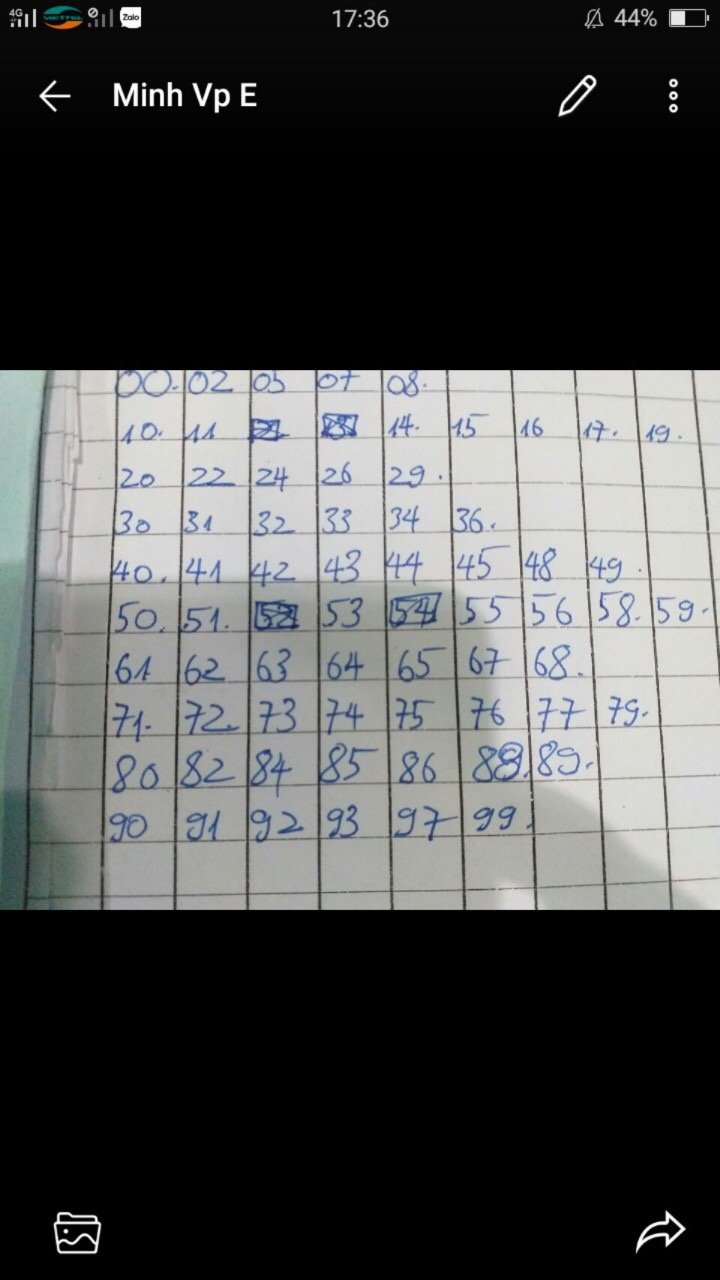 4G VIETTEL Zalo 17:36 44%
Minh Vp E
00. 02 03 07 08.
10. 11 14. 15 16 17. 19.
20 22 24 26 29.
30 31 32 33 34 36.
40. 41 42 43 44 45 48 49.
50. 51. 53 55 56 58. 59.
61 62 63 64 65 67 68.
71. 72. 73 74 75 76 77 79.
80 82 84 85 86 88. 89.
90 91 92 93 97 99.